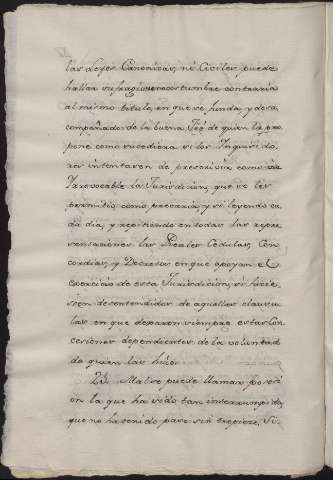 las Leyes Canonicas, ni Civiles, puede
hallar sufragio una costumbre contraria
al mismo titulo, en que se funda, y desa
compañada de la buena feé de quien la pro
pone como sucediera si los Inquisido
res intentasen de prescrivir como
Irrevocable la Jurisdicion, que se les
permitio como precaria, y si leyendo ca
da dia, y repitiendo en todas las repre
sentaciones las Reales Cedulas, Con
cordias, y Decretos en que apoyan el
exercicio de esta Jurisdicion, se hicie
sen desentendidos de aquellas clausu
las en que dexaron siempre estas Con
cesiones dependientes de la volunta
de quien las hizo.
23. Mal se puede llamar posesi
on la que ha sido tan interrumpida,
que no ha tenido paso sin tropiezo, Si-